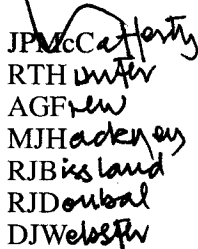 JPMcCafferty
RTHunter
AGFrew
MJHackney
RJBissland
RJDoubal
DJWebster